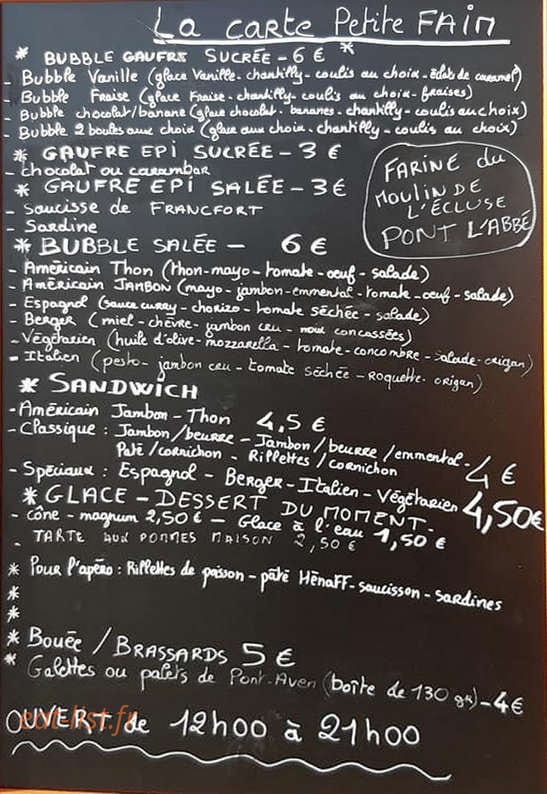 La carte Petite FAIM
* BUBBLE GAUFRE SUCRÉE - 6 € *
- Bubble Vanille (glace Vanille - chantilly - coulis au choix - éclats de caramel)
- Bubble Fraise (glace Fraise - chantilly - coulis au choix - fraises)
- Bubble chocolat/banane (glace chocolat - bananes - chantilly - coulis au choix)
- Bubble 2 boules aux choix (glace aux choix - chantilly - coulis au choix)
* GAUFRE EPI SUCRÉE - 3 €
- chocolat ou carambar
* GAUFRE EPI SALÉE - 3 €
- Saucisse de FRANCFORT
- Sardine
FARINE du
MOULIN DE
L'ÉCLUSE
PONT L'ABBÉ
* BUBBLE SALÉE - 6 €
- Américain Thon (thon - mayo - tomate - oeuf - salade)
- Américain JAMBON (mayo - jambon - emmental - tomate - oeuf - salade)
- Espagnol (sauce curry - chorizo - tomate séchée - salade)
- Berger (miel - chèvre - jambon cru - noix concassées)
- Végétarien (huile d'olive - mozzarella - tomate - concombre - salade - origan)
- Italien (pesto - jambon cru - tomate séchée - Roquette - origan)
* SANDWICH
- Américain Jambon - Thon 4,5 €
- Classique : Jambon/beurre - Jambon/beurre/emmental -
Paté/cornichon - Rillettes/cornichon 4 €
- Spéciaux : Espagnol - Berger - Italien - Végétarien 4,50€
* GLACE - DESSERT DU MOMENT -
- Cône - magnum 2,50 € - Glace à l'eau 1,50 €
- TARTE AUX POMMES MAISON 2,50 €
* Pour l'apéro : Rillettes de poisson - pâté HÉNAFF - saucisson - sardines
*
*
* Bouée / BRASSARDS 5 €
* Galettes ou palets de Pont-Aven (boîte de 130 grs) - 4 €
OUVERT de 12h00 à 21h00
eat-list.fr